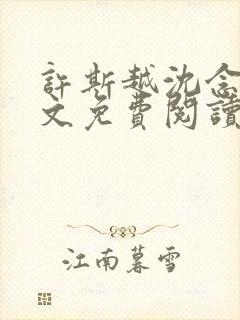 許斯越沈念
文免費閱讀
江南暮雪